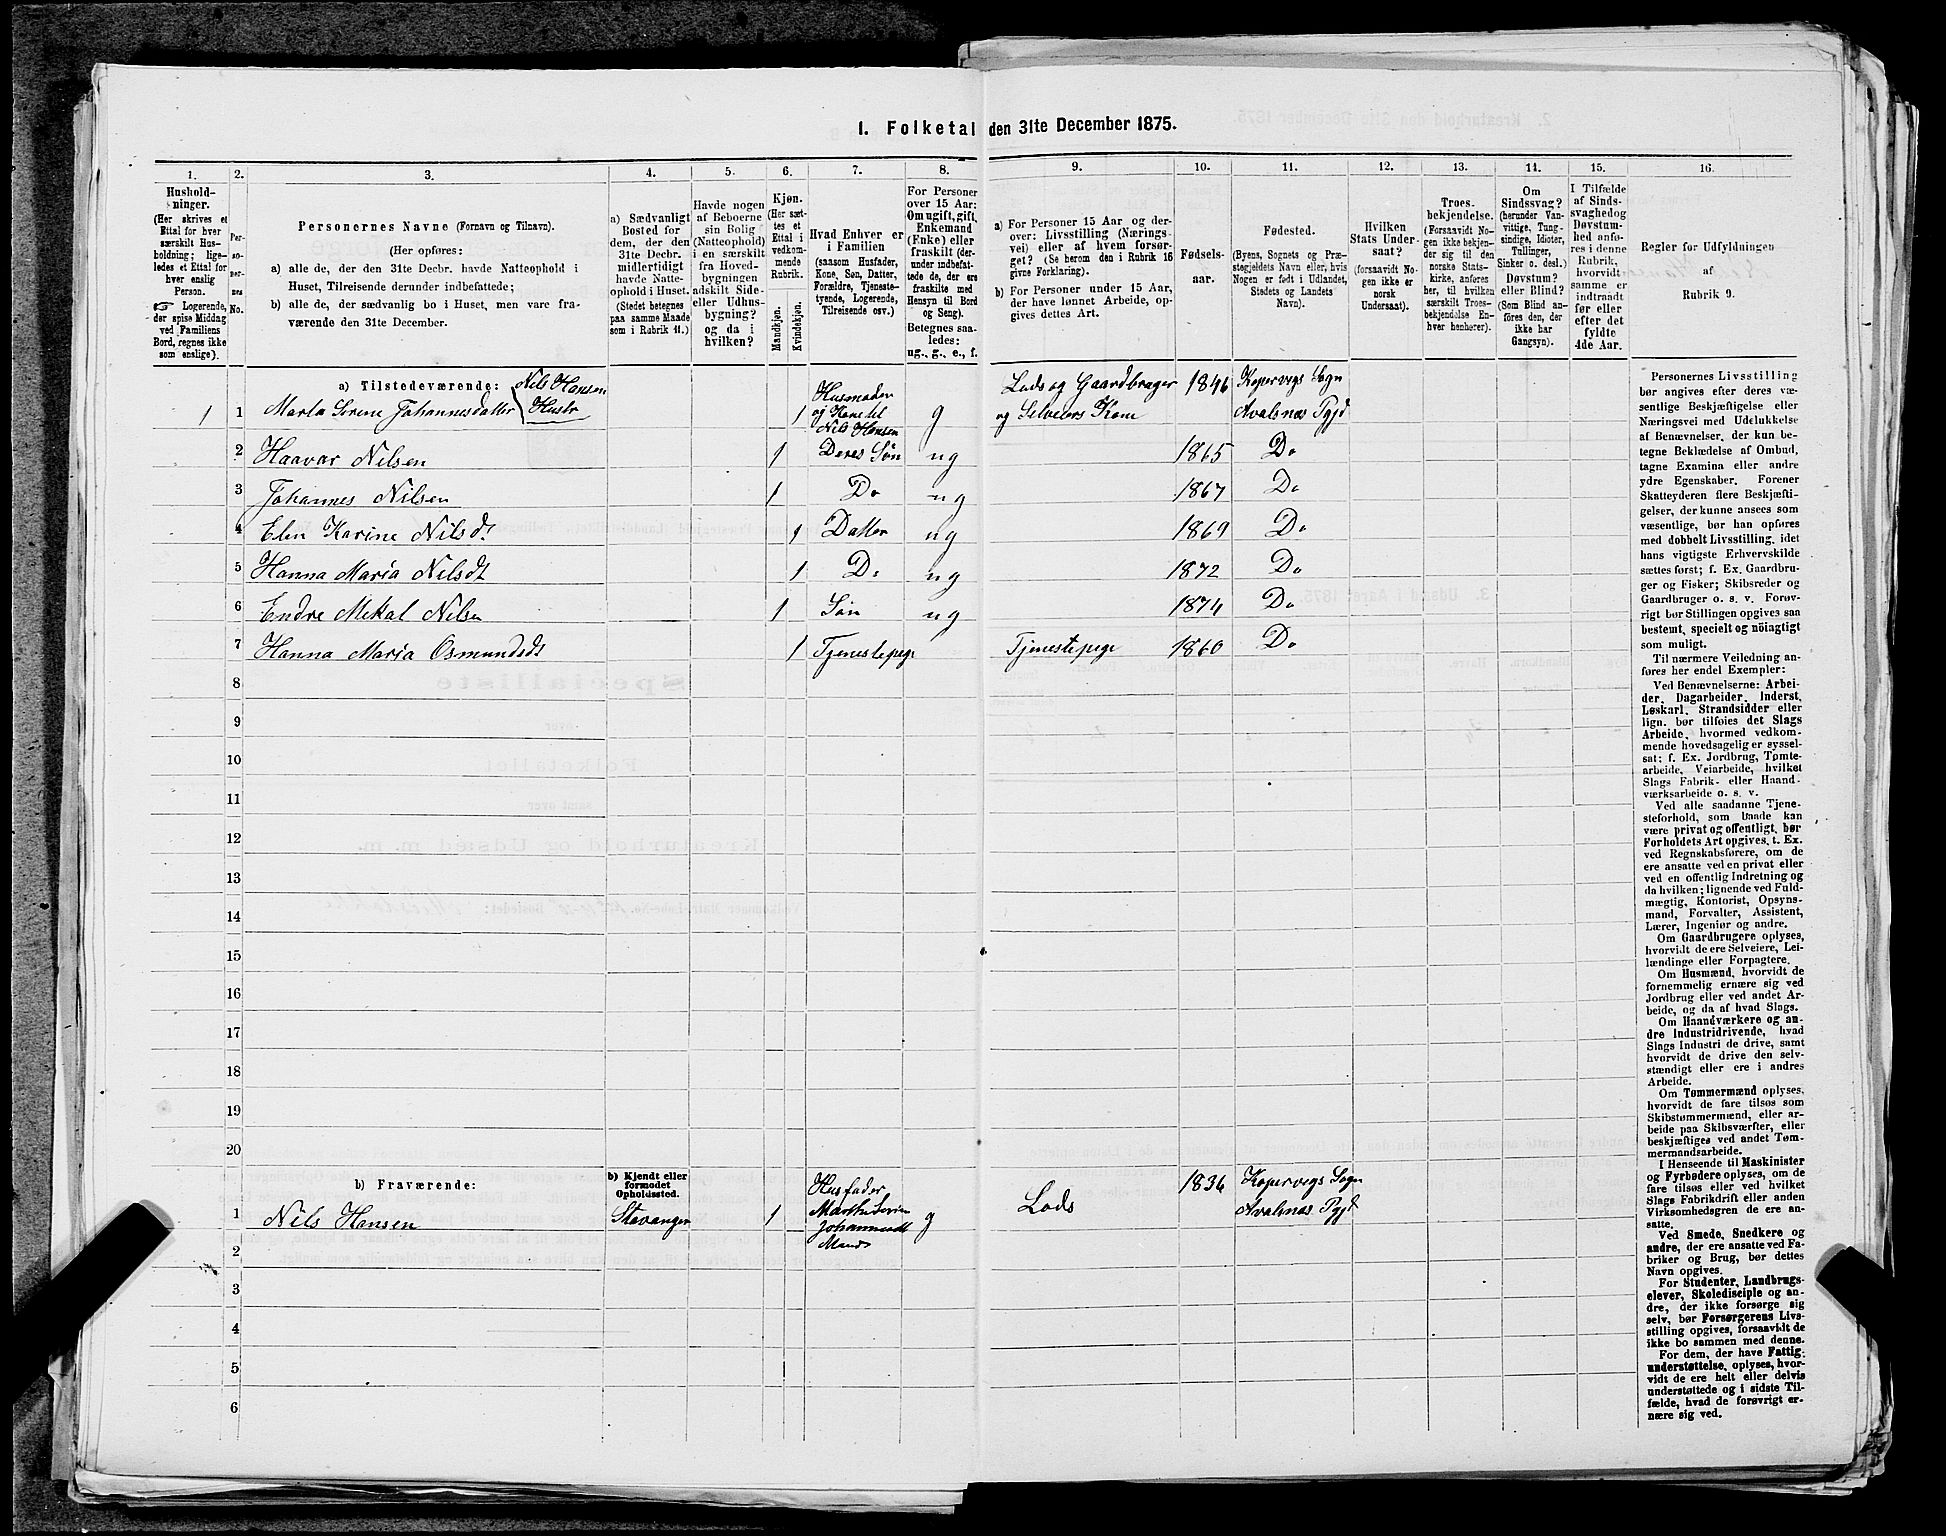 1. Folketal den 31te December 1875.
1.
2.
3.
4.
5.
6.
7.
8.
9.
10.
11.
12.
13.
14.
15.
16.
Hushold-
ninger.
(Her skrives et
Ettal for hver
særskilt Hus-
holdning; lige-
ledes et Ettal for
hver enslig
Person.
☞ Logerende,
der spise Middag
ved Familiens
Bord, regnes ikke
som enslige).
Per-
so-
ner-
nes
No.
Personernes Navne (Fornavn og Tilnavn).
(Her opføres:
a) alle de, der den 31te Decbr. havde Natteophold i
Huset, Tilreisende derunder indbefattede;
b) alle de, der sædvanlig bo i Huset, men vare fra-
værende den 31te December.
a) Sædvanligt
Bosted for
dem, der den
31te Decbr.
midlertidigt
havde Natte-
ophold i Huset.
(Stedet betegnes
paa samme Maade
som i Rubrik 11.)
Havde nogen
af Beboerne
sin Bolig
(Natteophold)
i en særskilt
fra Hoved-
bygningen
adskilt Side-
eller Udhus-
bygning?
og da i
hvilken?
Kjøn.
(Her sæt-
tes et
Ettal i
vedkom-
mende
Rubrik.
Mandkjøn.
Kvindekjøn.
Hvad Enhver er
i Familien
(saasom Husfader,
Kone, Søn, Datter,
Forældre, Tjeneste-
tyende, Logerende,
Tilreisende osv.)
For Personer
over 15 Aar:
Om ugift, gift,
Enkemand
(Enke) eller
fraskilt (der-
under indbefat-
tede de, der ere
fraskilte med
Hensyn til Bord
og Seng).
Betegnes saa-
ledes:
ug., g., e., f.
a) For Personer 15 Aar og der-
over: Livsstilling (Nærings-
vei) eller af hvem forsør-
get? (Se herom den i Rubrik 16
givne Forklaring).
b) For Personer under 15 Aar,
der have lønnet Arbeide, op-
gives dettes Art.
Fødsels-
aar.
Fødested.
(Byens, Sognets og Præ-
stegjeldets Navn eller, hvis
Nogen er født i Udlandet,
Stedets og Landets
Navn).
Hvilken
Stats Under-
saat?
(forsaavidt No-
gen ikke er
norsk
Undersaat).
Troes-
bekjendelse.
(Forsaavidt No-
gen ikke bekjen-
der sig til den
norske Stats-
kirke, anføres
her, til hvilken
særskilt Troes-
bekjendelse En-
hver henhører).
Om
Sindssvag?
(herunder Van-
vittige, Tung-
sindige, Idioter,
Tullinger,
Sinker o. desl.)
Døvstum?
eller Blind?
(Som Blind an-
føres den, der
ikke har
Gangsyn).
I Tilfælde
af Sinds-
svaghed og
Døvstum-
hed anfø-
res i denne
Rubrik,
hvorvidt
samme er
indtraadt
før eller
efter det
fyldte
4de Aar.
Regler for Udfyldningen
af
Rubrik 9.
a) Tilstedeværende: Nils Hansen
1 1 Marta Serine Johannesdatter Hustr 1 Husmoder
og Kone til
Nils Hansen g Lods og Gaardbruger
og Selveiers Kone 1846 Kopervigs Sogn
Avalsnæs Pgjd
2 Haavar Nilsen 1 Deres Søn ug 1865 Do
3 Johannes Nilsen 1 Do ug 1867 Do
4 Elen Karine Nilsdt 1 Datter ug 1869 Do
5 Hanna Maria Nilsdt 1 Do ug 1872 Do
6 Endre Mekal Nilsen 1 Søn ug 1874 Do
7 Hanna Maria Osmundsdt 1 Tjenestepige Tjenestepige 1860 Do
8
9
10
11
12
13
14
15
16
17
18
19
20
b) Fraværende:
b) Kjendt eller
formodet
Opholdssted.
1 Nils Hansen Stavanger 1 Husfader
Marthe Serine
Johannesdt
Mand g Lods 1836 Kopervigs Sogn
Avalsnæs Pgjd
2
3
4
5
6
Personernes Livsstilling
bør angives efter deres væ-
sentlige Beskjæftigelse eller
Næringsvei med Udelukkelse
af Benævnelser, der kun be-
tegne Beklædelse af Ombud,
tagne Examina eller andre
ydre Egenskaber. Forener
Skatteyderen flere Beskjæfti-
gelser, der kunne ansees som
væsentlige, bør han opføres
med dobbelt Livsstilling, idet
hans vigtigste Erhvervskilde
sættes først; f. Ex. Gaardbru-
ger og Fisker; Skibsreder og
Gaardbruger o. s. v. Forøv-
rigt bør Stillingen opgives saa
bestemt, specielt og nöiagtigt
som muligt.
Til nærmere Veiledning an-
føres her endel Exempler:
Ved Benævnelserne: Arbei-
der, Dagarbeider, Inderst,
Løskarl, Strandsidder eller
lign. bør tilføies det Slags
Arbeide, hvormed vedkom-
mende hovedsagelig er syssel-
sat; f. Ex. Jordbrug, Tømte-
arbeide, Veiarbeide, hvilket
Slags Fabrik- eller Haand-
værksarbeide o. s. v.
Ved alle saadanne Tjene-
steforhold, som baade kan
være privat og offentligt, bør
Forholdets Art opgives, t. Ex.
ved Regnskabsførere, om de
ere ansatte ved en privat eller
ved en offentlig Indretning og
da hvilken; lignende ved Fuld-
mægtig, Kontorist, Opsyns-
mand, Forvalter, Assistent,
Lærer, Ingeniør og andre.
Om Gaardbrugere oplyses,
hvorvidt de ere Selveiere, Lei-
lændinge eller Forpagtere.
Om Husmænd, hvorvidt de
fornemmelig ernære sig ved
Jordbrug eller ved andet Ar-
beide, og da af hvad Slags.
Om Haandværkere og an-
dre Industridrivende, hvad
Slags Industri de drive, samt
hvorvidt de drive den selv-
stændigt eller ere i andres
Arbeide.
Om Tømmermænd oplyses,
hvorvidt de fare tilsøs som
Skibstømmermænd, eller ar-
beide paa Skibsværfter, eller
beskjæftiges ved andet Tøm-
mermandsarbeide.
I Henseende til Maskinister
og Fyrbødere oplyses, om de
fare tilsøs eller ved hvilket
Slags Fabrikdrift eller anden
Virksomhedsgren de ere an-
satte.
Ved Smede, Snedkere og
andre, der ere ansatte ved Fa-
briker og Brug, bør dettes
Navn opgives.
For Studenter, Landbrugs-
elever, Skoledisciple og an-
dre, der ikke forsørge sig
selv, bør Forsørgerens Livs-
stilling opgives, forsaavidt de
ikke bo sammen med denne.
For dem, der have Fattig-
understøttelse, oplyses, hvor-
vidt de ere helt eller delvis
understøttede og i sidste Til-
fælde, hvad de forøvrigt er-
nære sig ved.